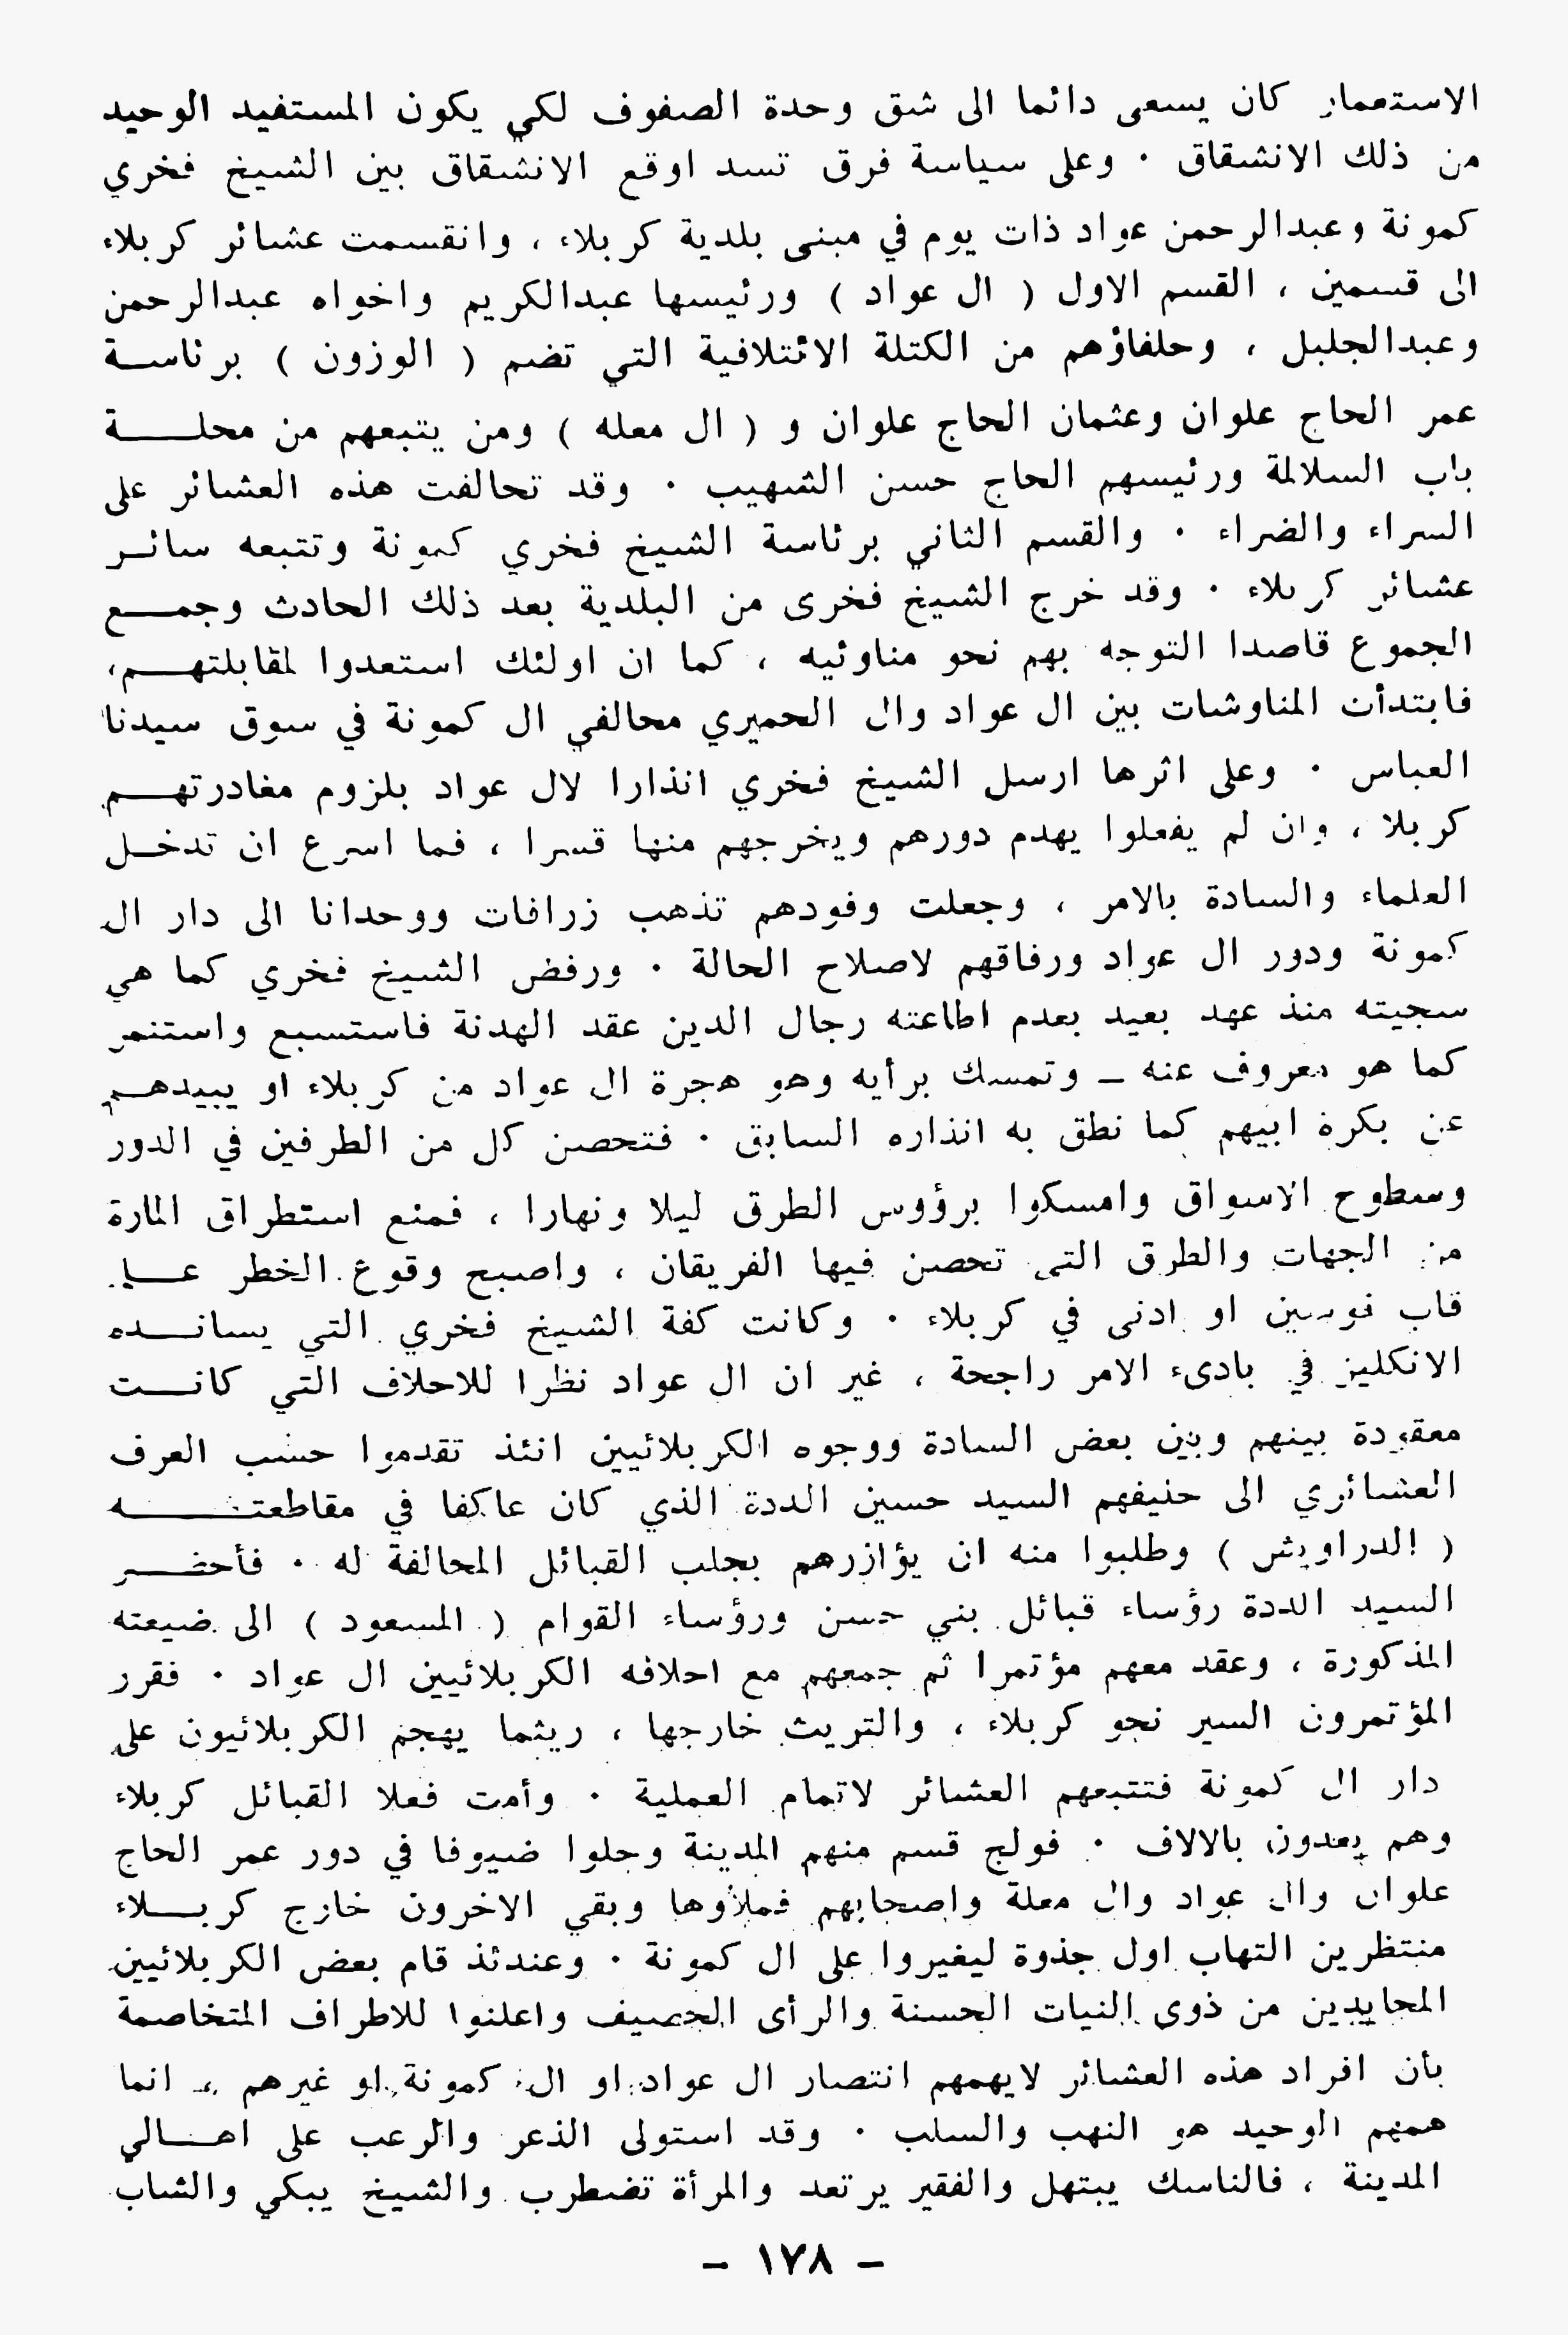 الاستعمار كان يسعى دائما الى شق وحدة الصفوف لكي يكون المستفيد الوحيد
من ذلك الانشقاق . وعلى سياسة فرق تسد اوقع الانشقاق بين الشيخ فخري
كمونة وعبدالرحمن عواد ذات يوم في مبنى بلدية كربلاء ، وانقسمت عشائر كربلاء
الى قسمين ، القسم الاول ( ال عواد ) ورئيسها عبدالكريم واخواه عبدالرحمن
وعبدالجليل ، وحلفاؤهم من الكتلة الائتلافية التي تضم ( الوزون ) برئاسة
عمر الحاج علوان وعثمان الحاج علوان و ( ال معله ) ومن يتبعهم من محلة
باب السلالمة ورئيسهم الحاج حسن الشهيب . وقد تحالفت هذه العشائر على
السراء والضراء . والقسم الثاني برئاسة الشيخ فخري كمونة وتتبعه سائر
عشائر كربلاء . وقد خرج الشيخ فخرى من البلدية بعد ذلك الحادث وجمع
الجموع قاصدا التوجه بهم نحو مناوئيه ، كما ان اولئك استعدوا لمقابلتهم،
فابتدأت المناوشات بين ال عواد وال الحميري محالفي ال كمونة في سوق سيدنا
العباس . وعلى اثرها ارسل الشيخ فخري انذارا لال عواد بلزوم مغادرتهم
كربلا ، وان لم يفعلوا يهدم دورهم ويخرجهم منها قسرا ، فما اسرع ان تدخل
العلماء والسادة بالامر ، وجعلت وفودهم تذهب زرافات ووحدانا الى دار ال
كمونة ودور ال عواد ورفاقهم لاصلاح الحالة . ورفض الشيخ فخري كما هي
سجيته منذ عهد بعيد بعدم اطاعته رجال الدين عقد الهدنة فاستسبع واستنمر
كما هو معروف عنه ــ وتمسك برأيه وهو هجرة ال عواد من كربلاء او يبيدهم
عن بكرة ابيهم كما نطق به انذاره السابق . فتحصن كل من الطرفين في الدور
وسطوح الاسواق وامسكوا برؤوس الطرق ليلا ونهارا ، فمنع استطراق المارة
من الجهات والطرق التي تحصن فيها الفريقان ، واصبح وقوع الخطر على
قاب قوسين او ادنى في كربلاء . وكانت كفة الشيخ فخري التي يسانده
الانكليز في بادىء الامر راجحة ، غير ان ال عواد نظرا للاحلاف التي كانت
معقودة بينهم وبين بعض السادة ووجوه الكربلائيين انئذ تقدموا حسب العرف
العشائري الى حنيفهم السيد حسين الددة الذي كان عاكفا في مقاطعته
( الدراويش ) وطلبوا منه ان يؤازرهم بجلب القبائل المحالفة له . فأحضر
السيد الددة رؤساء قبائل بني حسن ورؤساء القوام ( المسعود ) الى ضيعته
المذكورة ، وعقد معهم مؤتمرا ثم جمعهم مع احلافه الكربلائيين ال عواد . فقرر
المؤتمرون السير نحو كربلاء ، والتريث خارجها ، ريثما يهجم الكربلائيون على
دار ال كمونة فتتبعهم العشائر لاتمام العملية . وأمت فعلا القبائل كربلاء
وهم يعدون بالالاف . فولج قسم منهم المدينة وحلوا ضيوفا في دور عمر الحاج
علوان وال عواد وال معلة واصحابهم فملأوها وبقي الاخرون خارج كربلاء
منتظرين التهاب اول جذوة ليغيروا على ال كمونة . وعندئذ قام بعض الكربلائيين
المحايدين من ذوى النيات الحسنة والرأى الحصيف واعلنوا للاطراف المتخاصمة
بأن افراد هذه العشائر لايهمهم انتصار ال عواد او ال كمونة او غيرهم ، انما
همهم الوحيد هو النهب والسلب . وقد استولى الذعر والرعب على اهالي
المدينة ، فالناسك يبتهل والفقير يرتعد والمرأة تضطرب والشيخ يبكي والشاب
– ١٧٨ –